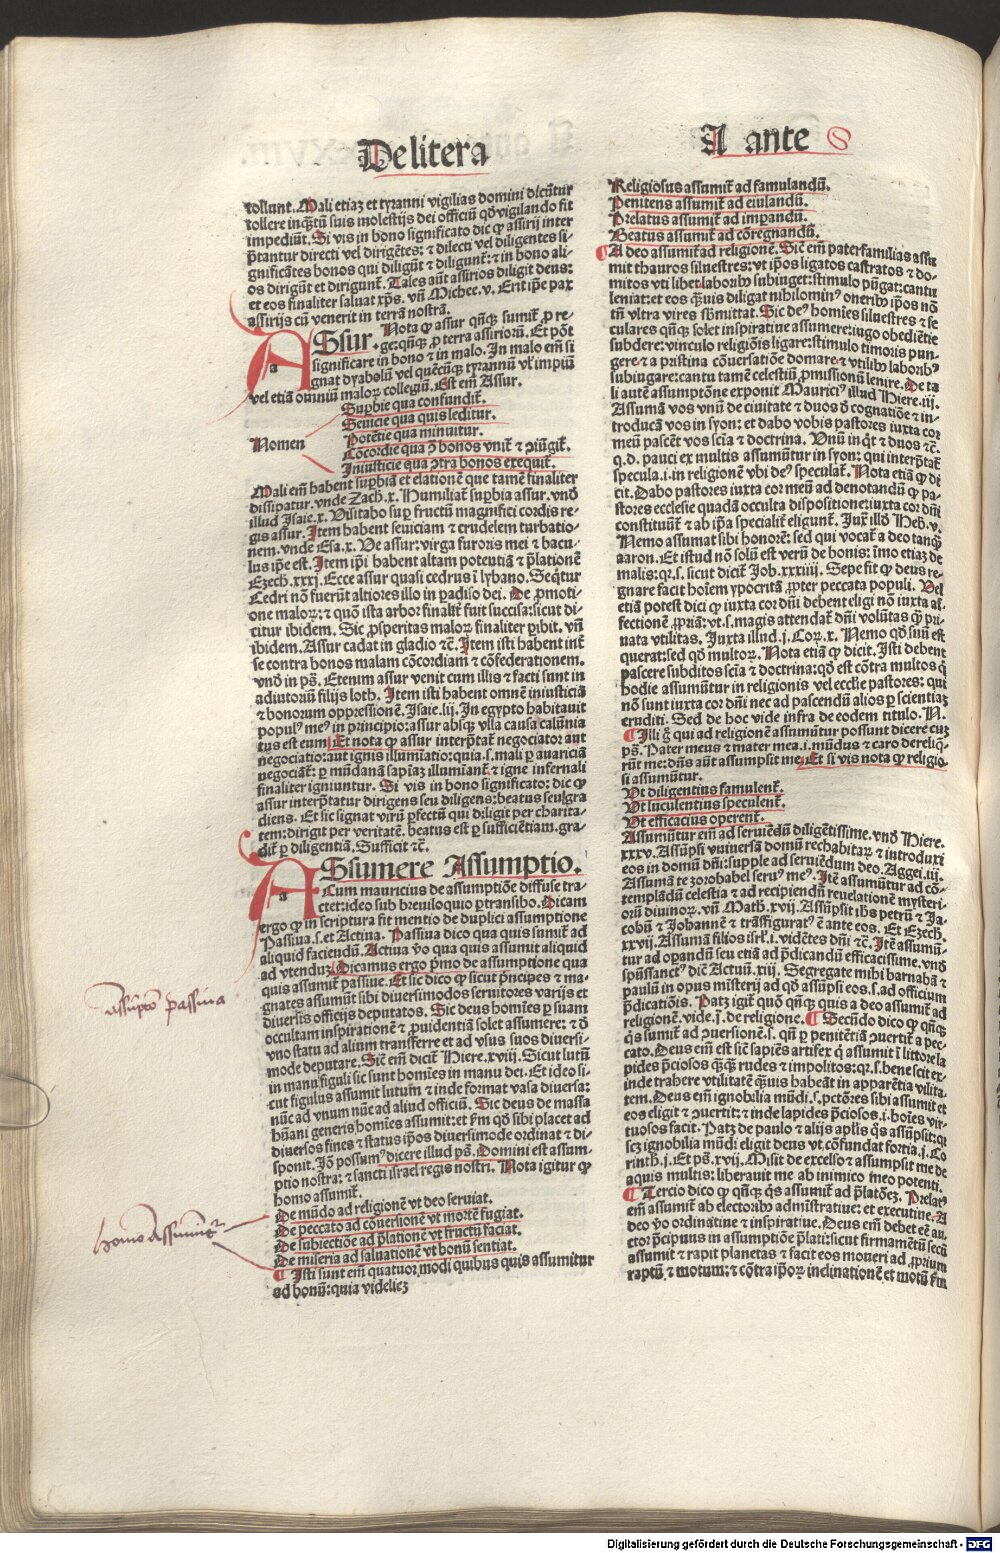 De litera
A ante S
tollunt. Mali etiaz et tyranni vigilias domini dicũtur
tollere inq̃tũ suis molestijs dei officiũ qd̛ vigilando fit
impediũt. Si vis in bono significato dic ꝙ assirij inter
p̃tantur directi vel dirigẽtes: ⁊ dilecti vel diligentes si-
gnificãtes bonos qui diligũt ⁊ diligunt̃: ⁊ in bono ali-
os dirigũt et dirigunt. Tales aũt assirios diligit deus:
et eos finaliter saluat xp̃s. vñ Michee.v. Erit ip̃e pax
assirijs cũ venerit in terrã nostrã.
ASsur. Nota ꝙ assur qñqꝫ sumit̃ ꝓ re-
ge: qñqꝫ ꝓ terra assiriorũ. Et põt
significare in bono ⁊ in malo. In malo em̃ si
gnat dyabolũ vel quẽcũqꝫ tyrannũ vl̓ impiũ
vel etiã omniũ maloꝝ collegiũ. Est em̃ Assur.
Supbie qua confundit̃.
Seuicie qua quis leditur.
Nomen
Potẽtie qua minuitur.
Cõcordie qua ꝓ bonos vnit̃ ⁊ ꝯiũgit̃.
Iniusticie qua ꝯtra bonos exequit̃.
Mali em̃ habent supbiã et elationẽ que tamẽ finaliter
dissipatur. vnde Zach.x. Humiliat̃ supbia assur. vnd̓
illud Isaie.x. Visitabo sup fructũ magnifici cordis re-
gis assur. Item habent seuiciam ⁊ crudelem turbatio-
nem. vnde Esa.x. Ve assur: virga furoris mei ⁊ bacu-
lus ip̃e est. Item ip̃i habent altam potentiã ⁊ p̃lationẽ
Ezech.xxxj. Ecce assur quasi cedrus ĩ lybano. Seq̃tur
Cedri nõ fuerũt altiores illo in padiso dei. De ꝓmoti-
one maloꝝ: ⁊ quõ ista arbor finalit̃ fuit succisa: sicut di-
citur ibidem. Sic ꝓsperitas maloꝝ finaliter pibit. vñ
ibidem. Assur cadat in gladio ⁊c̃. Item isti habent int̃
se contra bonos malam cõcordiam ⁊ cõfederationem.
vnd̓ in ps̃. Etenim assur venit cum illis ⁊ facti sunt in
adiutoriũ filijs loth. Item isti habent omnẽ iniusticiã
⁊ bonorum oppressionẽ. Isaie.lij. In egypto habitauit
populꝰ meꝰ in principio: assur absqꝫ vlla causa calũnia
tus est eum. Et nota ꝙ assur interp̃tat̃ negociator aut
negociatio: aut ignis illumĩatio: quia.s. mali p auariciã
negociãt̃: p mũdanã sapĩaz illumiãnt̃ ⁊ igne infernali
finaliter igniuntur. Si vis in bono significato: dic ꝙ
assur interp̃tatur dirigens seu diligens: beatus seu gra
diens. Et sic signat virũ pfectũ qui diligit per charita-
tem: dirigit per veritatẽ. beatus est p sufficiẽtiam. gra-
dit̃ p diligentiã. Sufficit ⁊c̃.
ASsumere Assumptio.
Cum mauricius de assumptiõe diffuse tra-
ctet: ideo sub breuiloquio ptransibo. Dicam
ergo ꝙ in scriptura fit mentio de duplici assumptione
Passiua.s. et Actiua. Passiua dico qua quis sumit̃ ad
aliquid faciendũ. Actiua ṽo qua quis assumit aliquid
ad vtenduꝫ. Dicamus ergo p̃mo de assumptione qua
quis assumit̃ passiue. Et sic dico ꝙ sicut p̃ncipes ⁊ ma-
gnates assumũt sibi diuersimodos seruitores varijs et
diuersis officijs deputatos. Sic deus homĩes p suam
occultam inspirationẽ ⁊ ꝓuidentiã solet assumere: ⁊ d̓
vno statu ad alium transferre et ad vsus suos diuersi-
mode deputare. Sic em̃ dicit̃ Hiere.xviii. Sicut lutũ
in manu figuli sic sunt homĩes in manu dei. Et ideo si-
cut figulus assumit lutum̃ ⁊ inde format vasa diuersa:
nũc ad vnum nũc ad aliud officiũ. Sic deus de massa
hũani generis homĩes assumit: et s̃m qd̛ sibi placet ad
diuersos fines ⁊ status ip̃os diuersimode ordinat ⁊ di-
sponit. Iõ possumꝰ dicere illud ps̃. Domini est assum-
ptio nostra: ⁊ sancti israel regis nostri. Nota igitur ꝙ
homo assumit̃.
De mũdo ad religionẽ vt deo seruiat.
De peccato ad cõuersionẽ vt mortẽ fugiat.
De subiectiõe ad p̃lationẽ vt fructũ faciat.
De miseria ad saluationẽ vt bonũ sentiat.
¶ Isti sunt em̃ quatuor modi quibus quis assumitur
ad bonũ: quia videlicꝫ
Assũptio passiua
homo Assumit̃
Religiosus assumit̃ ad famulandũ.
Penitens assumit̃ ad eiulandũ.
Prelatus assumit̃ ad impandũ.
Beatus assumit̃ ad cõregnandũ.
¶ A deo assumit̃ ad religionẽ. Sic em̃ paterfamilias assu
mit thauros siluestres: vt ip̃os ligatos castratos ⁊ do-
mitos vti libet laboribꝰ subiuget: stimulo pũgat: cantu
leniat: et eos q̃uis diligat nihilominꝰ oneribꝰ ip̃os nõ
tñ vltra vires sb̓mittat. Sic deꝰ homĩes siluestres ⁊ se
culares qñqꝫ solet inspiratiue assumere: iugo obediẽtie
subdere: vinculo religiõis ligare: stimulo timoris pun-
gere: ⁊ a pristina cõuersatiõe domare: ⁊ vtilibꝰ laboribꝰ
subiugare: cantu tamẽ celestiũ ꝓmissionũ lenire. De ta
li autẽ assumptõne exponit Mauriciꝰ illud Hiere.iij.
Assumã vos vnũ de ciuitate ⁊ duos d̓ cognatiõe ⁊ in-
troducã vos in syon: et dabo vobis pastores iuxta cor
meũ pascẽt vos sciã ⁊ doctrina. Vnũ inq̃t ⁊ duos ⁊c̃.
q.d. pauci ex multis assumũtur in syon: qui interp̃tat̃
specula.i. in religionẽ vbi deꝰ speculat̃. Nota etiã ꝙ di
cit. Dabo pastores iuxta cor meũ ad denotandũ ꝙ pa-
stores ecclesie quadã occulta dispositione: iuxta cor dñi
constituũt̃ ⁊ ab ip̃a specialit̃ eligunt̃. Iux̃ illd̓ Heb̓.v.
Nemo assumat sibi honorẽ: sed qui vocat̃ a deo tanqꝫ
aaron. Et istud nõ solũ est verũ de bonis: ĩmo etiaz de
malis: qꝛ.s. sicut dicit̃ Job.xxxiiij. Sepe fit ꝙ deus re-
gnare facit hoĩem ypocritã ꝓpter peccata populi. Vel
etiã potest dici ꝙ iuxta cor dñi debent eligi nõ iuxta af-
fectionẽ ꝓpriã: vt.s. magis attendat̃ dñi volũtas q̃ pri-
uata vtilitas. Iuxta illud.j. Coꝝ.x. Nemo qd̛ suũ est
querat: sed qd̛ multoꝝ. Nota etiã ꝙ dicit. Isti debent
pascere subditos sciã ⁊ doctrina: qd̛ est cõtra multos q̃
hodie assumũtur in religionis vel ecclie pastores: qui
nõ sunt iuxta cor dñi nec ad pascendũ alios p scientiaz
eruditi. Sed de hoc vide infra de eodem titulo. N.
¶ Illi q̃ qui ad religionẽ assumũtur possunt dicere cuꝫ
ps̃. Pater meus ⁊ mater mea.i. mũdus ⁊ caro dereliq̃-
rũt me: dñs aũt assumpsit me. Et si vis nota ꝙ religio-
si assumũtur.
Vt diligentius famulent̃.
Vt luculentius speculent̃.
Vt efficacius operent̃.
Assumũtur em̃ ad seruiẽdũ diligẽtissime. vnd̓ Hiere.
xxxv. Assũpsi vniuersã domũ rechabitaꝝ ⁊ introduxi
eos in domũ dñi: supple ad seruiẽdum deo. Aggei.iij.
Assumã te zorobabel seruꝰ meꝰ. Itẽ assumũtur ad cõ-
templãdũ celestia ⁊ ad recipiendũ reuelationẽ mysteri-
orũ diuinoꝝ. vñ Math̓.xvij. Assũpsit ihs petrũ ⁊ Ja-
cobũ ⁊ Johannẽ ⁊ trãsfiguratꝰ ẽ ante eos. Et Ezech̓.
xxvij. Assumã filios isrl̓.i. vidẽtes dñi ⁊c̃. Itẽ assumũ-
tur ad opandũ seu etiã ad p̃dicandũ efficacissime. vnd̓
spũssanctꝰ dic̃ Actuũ.xij. Segregate mihi barnabã ⁊
paulũ in opus misterij ad qd̛ assũpsi eos.s. ad officium
p̃dicatiõis. Patꝫ igit̃ quõ qñqꝫ quis a deo assumit̃ ad
religionẽ. vide.j. de religione. ¶ Secũdo dico ꝙ qñqꝫ
q̃s sumit̃ ad ꝯuersionẽ.s. qñ p penitẽtiã ꝯuertit̃ a pec-
cato. Deus em̃ est sic̃ sapiẽs artifex q̃ assumit ĩ littore la
pides p̃ciosos q̃qꝫ rudes ⁊ impolitos: qꝛ.s. bene scit ex-
inde trahere vtilitatẽ q̃uis habeãt in apparẽtia vilita-
tem. Deus em̃ ignobilia mũdi.s. pctõres sibi assumit et
eos eligit ⁊ ꝯuertit: ⁊ inde lapides p̃ciosos.i. hoĩes vir-
tuosos facit. Patꝫ de paulo ⁊ alijs aplis q̃s assũpsit: qꝛ
scꝫ ignobilia mũdi eligit deus vt cõfundat fortia.j. Co
rinth̓.j. Et ps̃.xvij. Misit de excelso ⁊ assumpsit me de
aquis multis: liberauit me ab inimico meo potenti.
¶ Tercio dico ꝙ qñqꝫ q̃s assumit̃ ad p̃latõeꝫ. Prelatꝰ
em̃ assumit̃ ab electoribꝰ admĩstratiue: et executine. A
deo ṽo ordinatiue ⁊ inspiratiue. Deus em̃ debet eẽ au-
ctor p̃cipuus in assumptiõe p̃lati: sicut firmamẽtũ secũ
assumit ⁊ rapit planetas ⁊ facit eos moueri ad ꝓprium
raptũ ⁊ motum: ⁊ cõtra ip̃oꝝ inclinationẽ et motũ s̃m
Digitalisierung gefördert durch die Deutsche Forschungsgemeinschaft - DFG